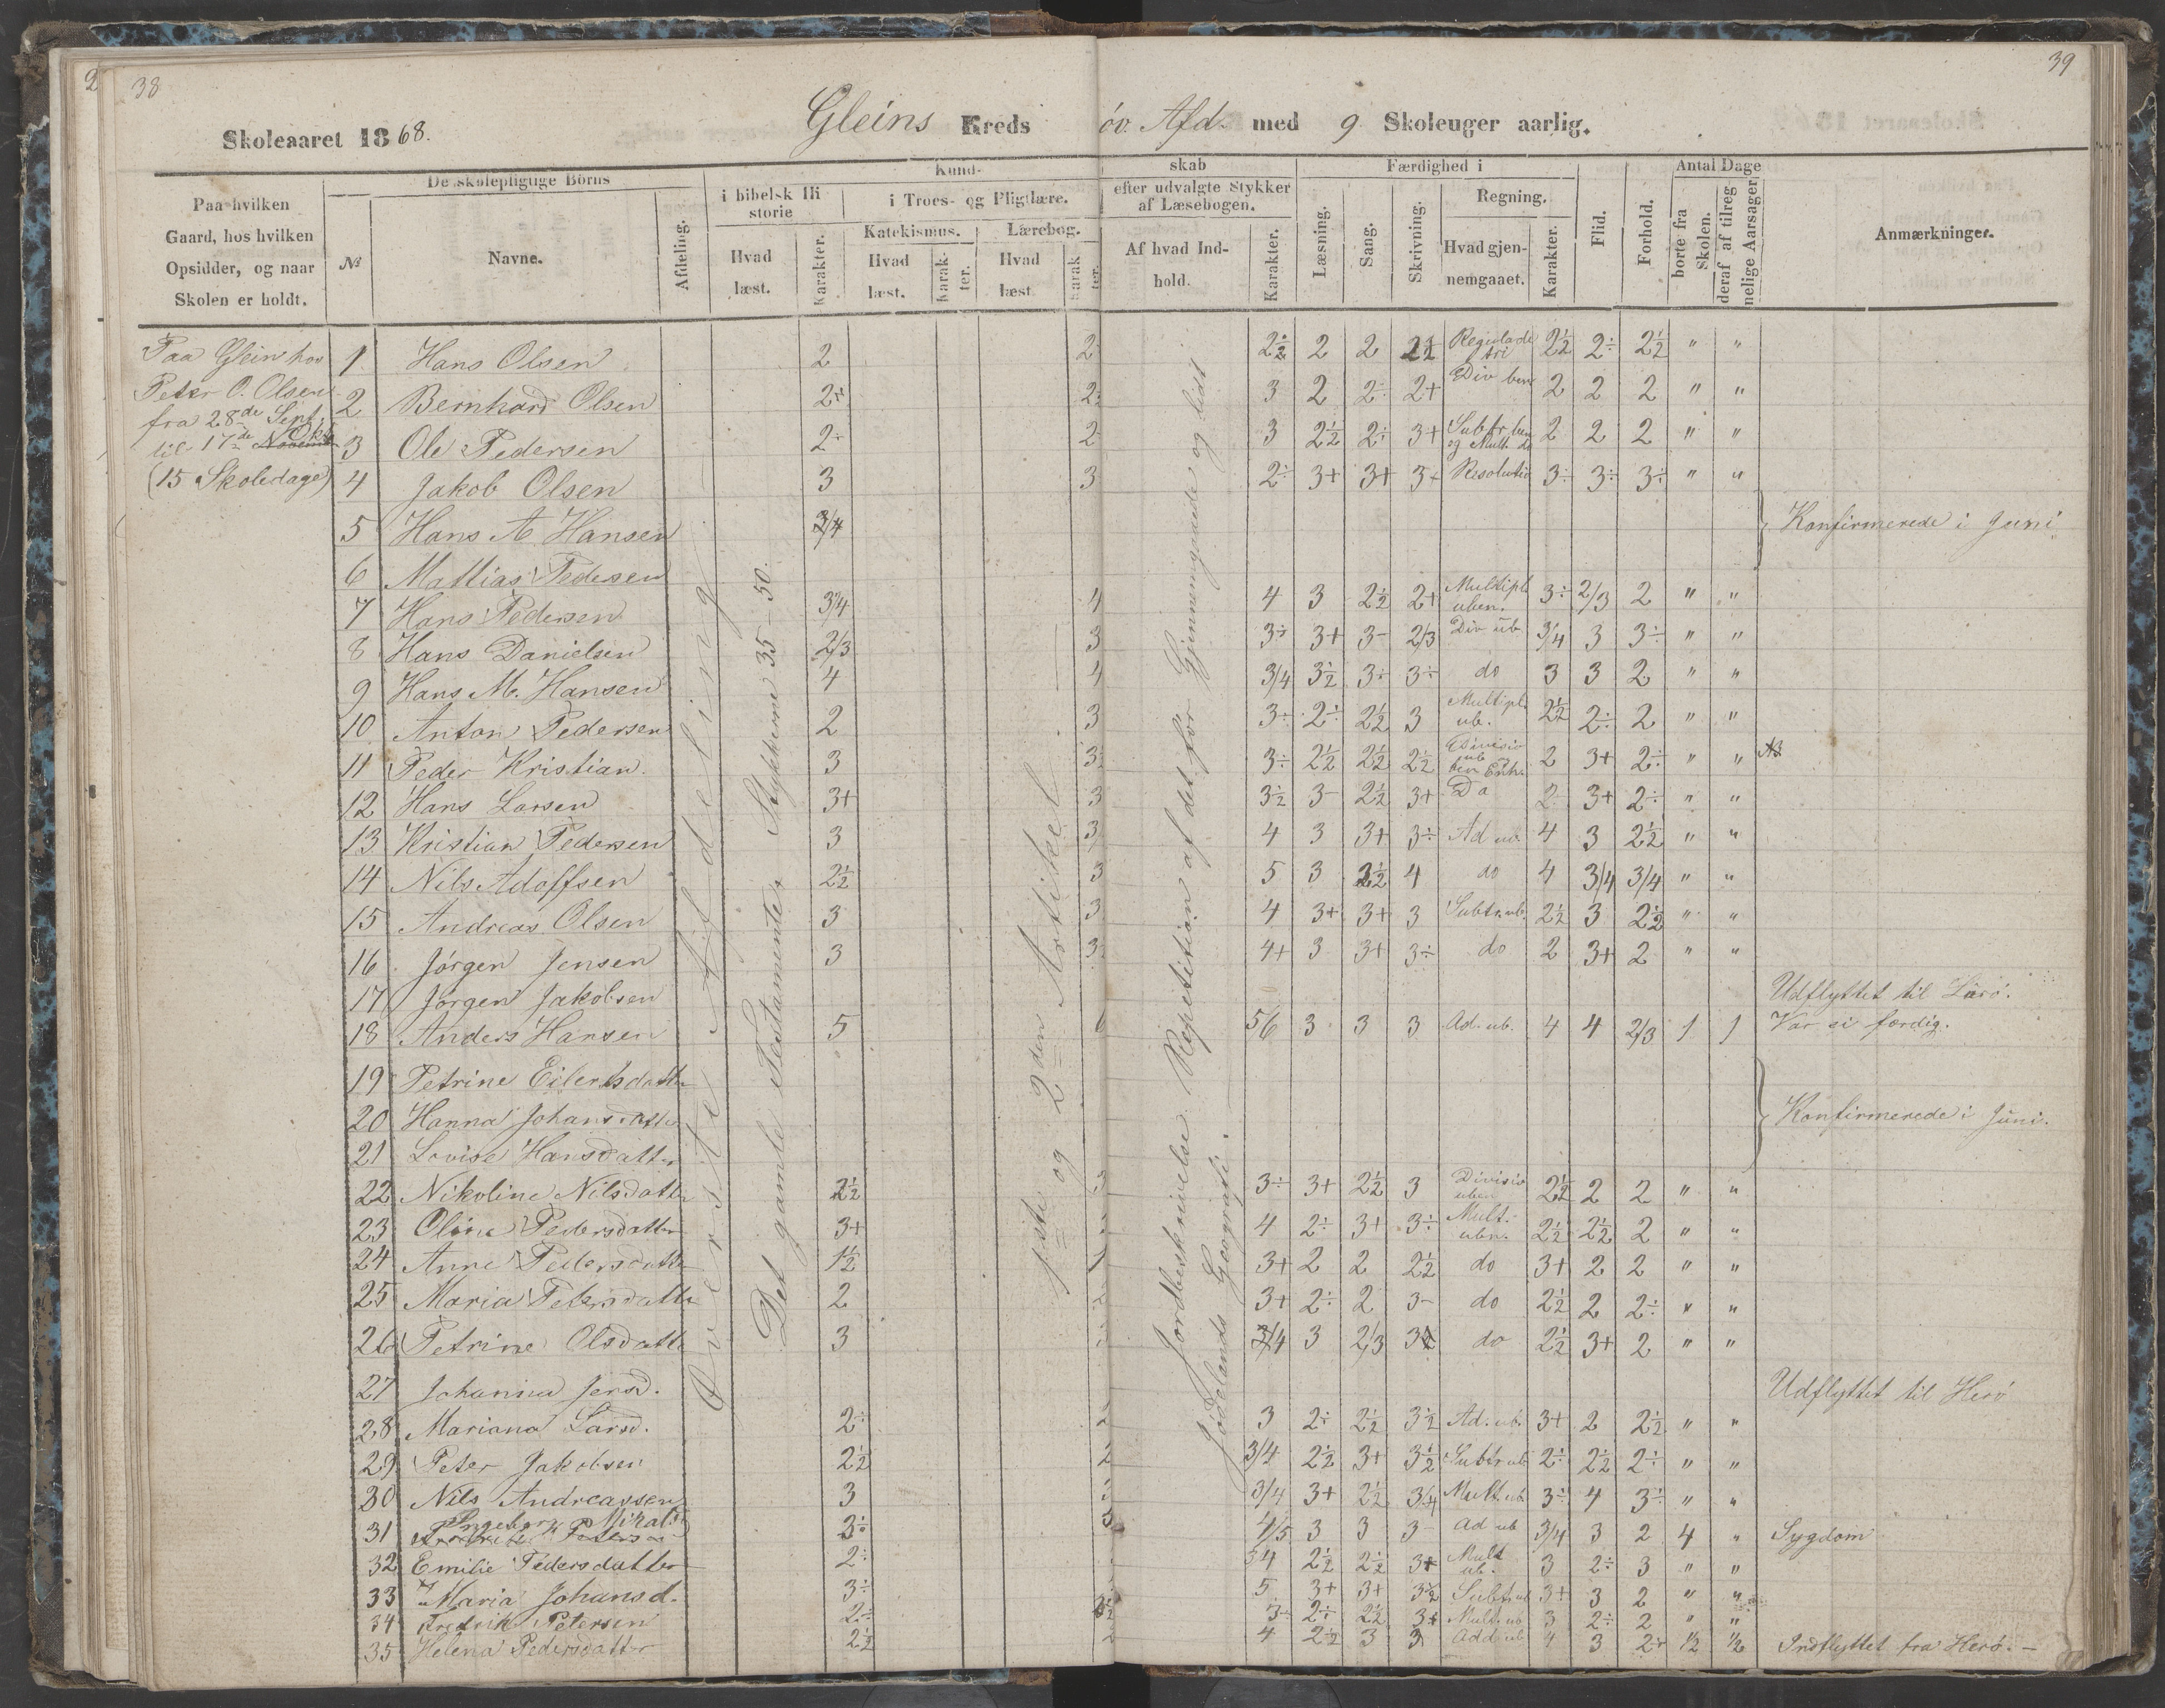 2
38
39
Skoleaaret 1868.
Gleins Kreds öv. Afd. med 9 Skoleuger aarlig.
Paa hvilken Gaard, hos hvilken Opsidder, og naar Skolen er holdt.
De skolepligtige Börns
№
Navne.
Afdeling.
Kund-
skab
i bibelsk Hi storie
Hvad læst.
Karakter.
i Troes- og Pligtlære.
Katekismus.
Hvad læst.
Karak-ter.
Lærebog.
Hvad læst
Karak ter.
efter udvalgte Stykker af Læsebogen.
Af hvad Ind-hold.
Karakter.
Færdighed i
Læsning.
Sang.
Skrivning.
Regning.
Hvad gjen-nemgaaet.
Karakter.
Flid.
Forhold.
Antal Dage
borte fra Skolen.
deraf af tilreg nelige Aarsager
Anmærkninger.
Paa Glein hos
Peter O. Olsen
fra 28de Sept.
til 17de Okt
(15 Skoledage)
Øverste Afdeling
Det gamle Testamente Stykkerne 35-50.
1ste og 2den Artikel
Jordbeskrivelse. Repetition af det før Gjennemgaaede og lidt
Jødelands Geografi.
1 Hans Olsen 2 2 2½ 2 2 2½ Reguladetri 2½ 2÷ 2½ " "
2 Bernhard Olsen 2÷ 2÷ 3 2 2÷ 2+ Div ben 2 2 2 " "
3 Ole Pedersen 2÷ 2 3 2½ 2÷ 3+ Subtr. ben og Mult. do 2 2 2 " "
4 Jakob Olsen 3 3 2÷ 3+ 3+ 3+ Resolutio 3÷ 3÷ 3÷ " "
5 Hans A Hansen 3/4 Konfirmerede i Juni
6 Mattias Pedersen
7 Hans Pedersen 3/4 4 4 3 2½ 2+ Multipl. uben. 3÷ 2/3 2 " "
8 Hans Danielsen 2/3 3 3÷ 3+ 3- 2/3 Div ub 3/4 3 3÷ " "
9 Hans M. Hansen 4 4 3/4 3½ 3÷ 3÷ do 3 3 2 " "
10 Anton Pedersen 2 3 3÷ 2÷ 2½ 3 Multipl. ub. 2½ 2÷ 2 " "
11 Peder Kristian. 3 3 3÷ 2½ 2½ 2½ Divisio ub ben Enh. 2 3+ 2÷ " "
12 Hans Larsen 3+ 3 3½ 3- 2½ 3+ Do 2 3+ 2÷ " "
13 Kristian Pedersen 3 3 4 3 3+ 3÷ Ad ub 4 3 2½ " "
14 Nils Adolfsen 2½ 3 5 3 2½ 4 do 4 3/4 3/4 " "
15 Andreas Olsen 3 3 4 3+ 3+ 3 Subtr. ub. 2½ 3 2½ " "
16 Jörgen Jensen 3 3 4+ 3 3+ 3÷ do 2 3+ 2 " "
17 Jörgen Jakobsen Udflyttet til
18 Anders Hansen 5 6 5/6 3 3 3 Ad. ub. 4 4 2/3 1 1 Var ei færdig.
19 Petrine Eilertsdatter
20 Hanna Johansdatter Konfirmerede i Juni.
21 Lovise Hansdatter
22 Nikoline Nilsdatter 2½ 3 3÷ 3+ 2½ 3 Divisio uben 2½ 2 2 " "
23 Oline Pedersdatter 3+ 4 2÷ 3+ 3÷ Mult. uben. 2½ 2½ 2 " "
24 Anne Pedersdatter 1½ 1 3+ 2 2 2½ do 3+ 2 2 " "
25 Maria Petersdatter 2 2 3+ 2÷ 2 3- do 2½ 2 2÷ " "
26 Petrine Olsdatter 3 3/4 3 2/3 3 do 2½ 3+ 2 " "
27 Johanna Jensd. Udflyttet til Herö
28 Mariana Larsd. 2÷ 2 3 2÷ 2½ 3½ Ad. ub. 3+ 2 2½ " "
29 Peter Jakobsen 2½ 2 3/4 2½ 3+ 3½ Subtr. ub 2÷ 2½ 2÷ " "
30 Nils Andreassen 3 3/4 3+ 2½ 3/4 Mult. ub 3÷ 4 3÷ " "
31 Ingeborg Mikals 3÷ 3 4/5 3 3 3- Ad ub 3/4 3 2 4 " Sygdom
32 Emilie Pedersdatter 2÷ 3/4 2½ 2½ 3+ Mult ub. 3 2÷ 3 " "
33 Maria Johansd. 3÷ 5 3+ 3+ 3½ Subtr. ub 3+ 3 2 " "
34 Fredrik Petersen 2÷ 3½ 3÷ 2÷ 2½ 3+ Mult. ub 3 2÷ 2 " "
35 Helena Pedersdatter 2½ 4 2½ 3 3 Add. ub 4 3 2÷ ½ ½ Indflyttet fra Herö.-